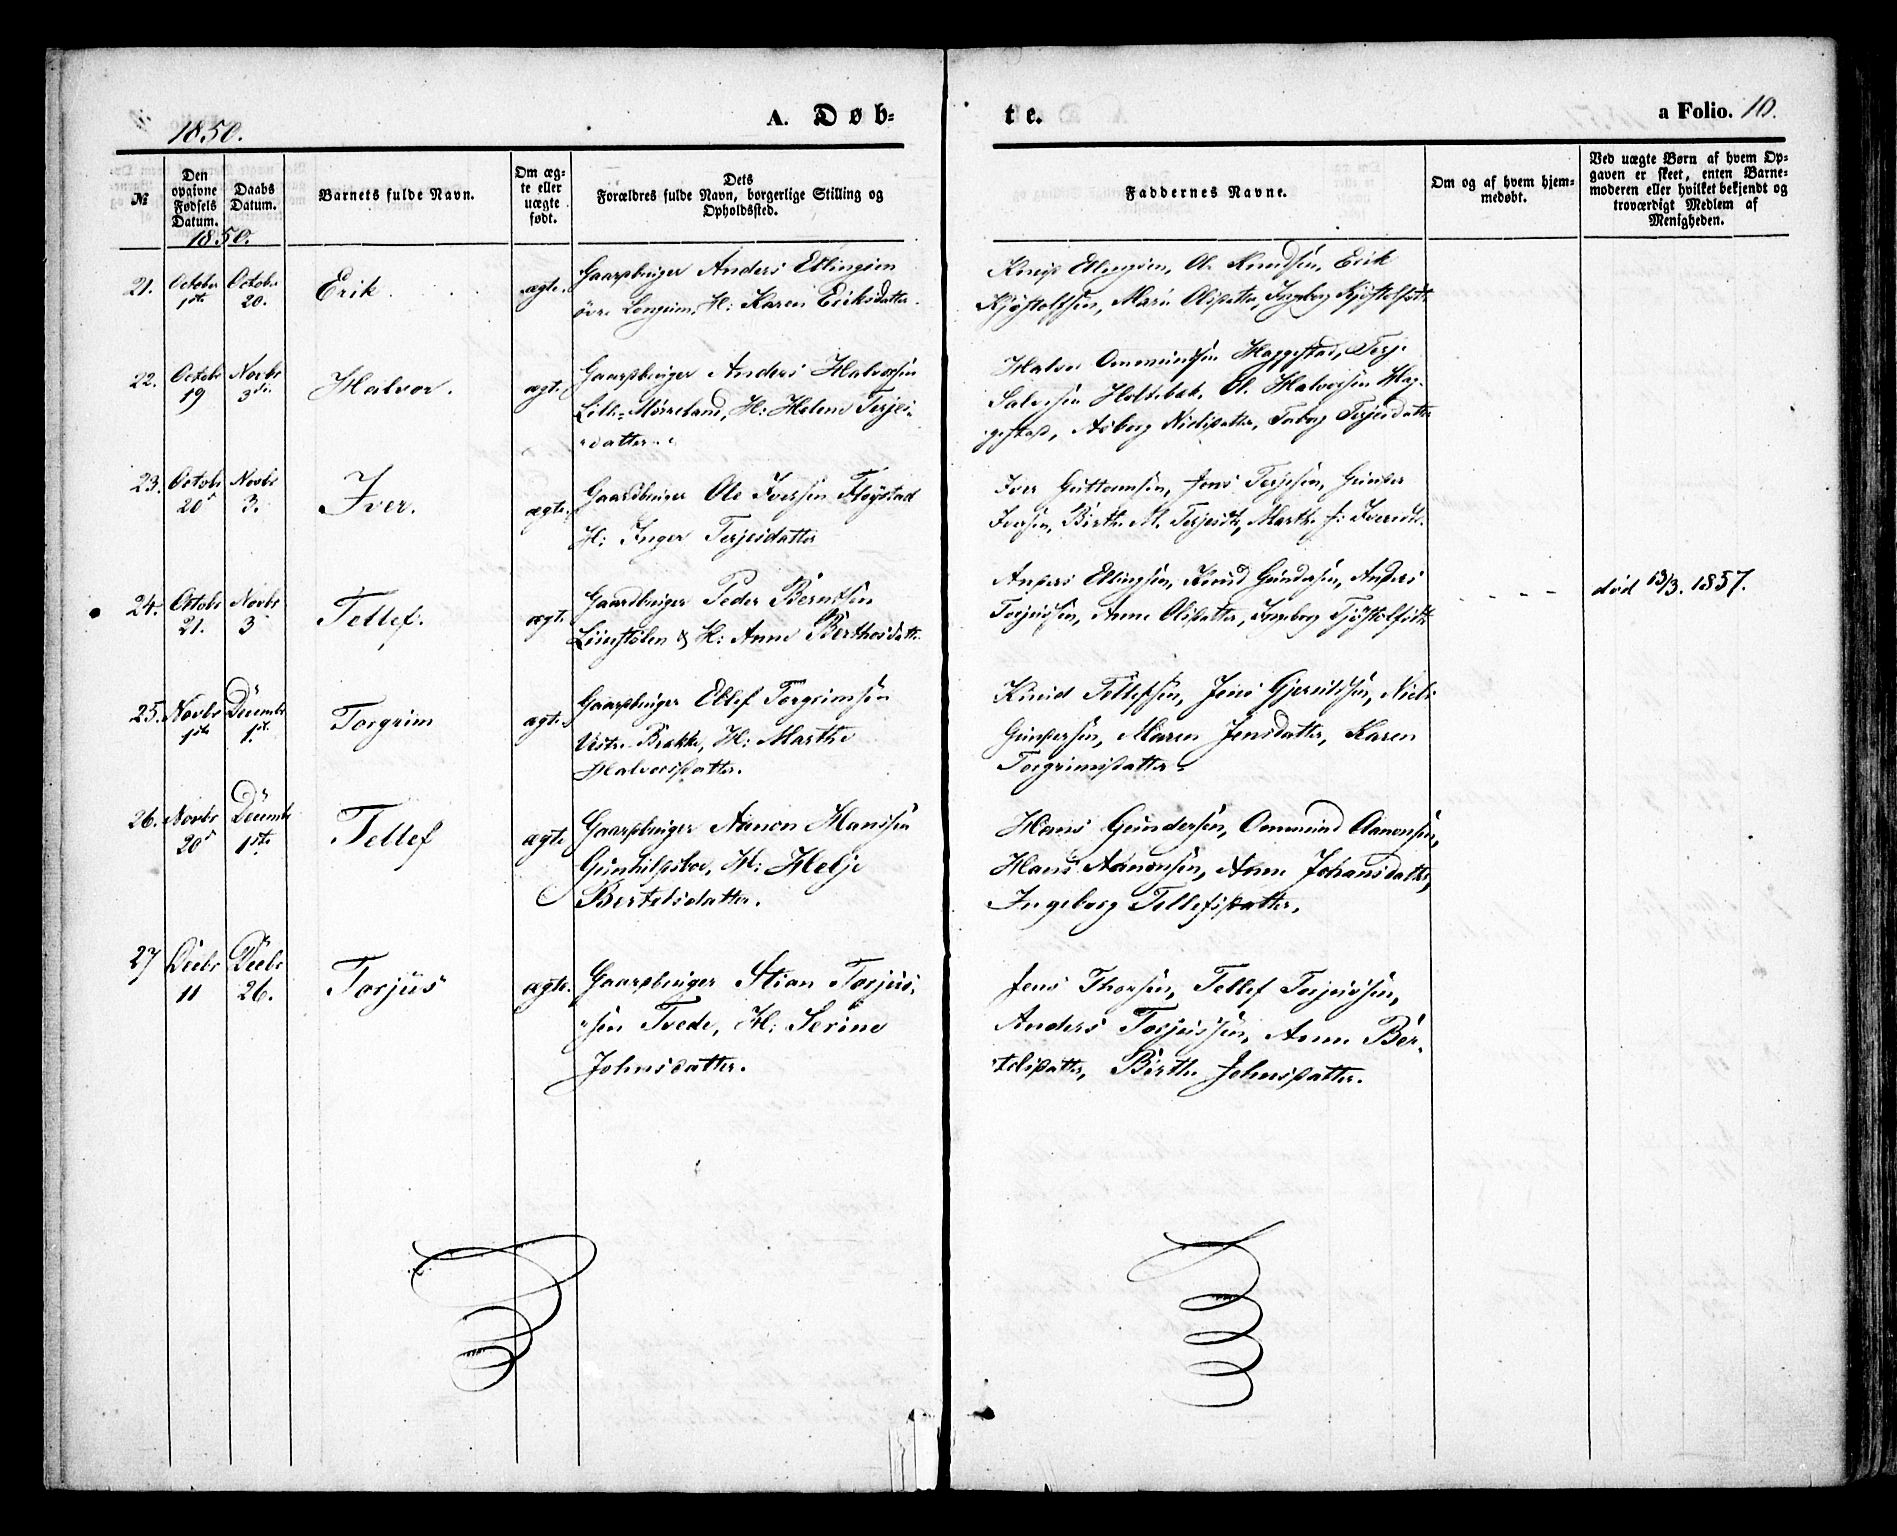 1850.
A. Døb-
te.
a Folio. 10.
№
Den opgivne Fødsels Datum.
Daabs Datum.
Barnets fulde Navn.
Om ægte eller uægte født.
Dets
Forældres fulde Navn, borgerlige Stilling og
Opholdssted.
Faddernes Navne.
Om og af hvem hjemmedøbt.
Ved uægte Børn af hvem Opgaven er skeet, enten Barnemoderen eller hvilket bekjendt og troværdigt Medlem af Menigheden.
1850.
21. October 1ste Octobr 20. Erik ægte. Gaardbruger Anders Ellingsen
øvre Longum, H: Karen Eriksdatter.
Knud Ellingsen, Ole Knudsen, Erik
Kjøstolfsen, Maren Olsdatter, Ingeborg Kjøstolfsdtr
22. Octobr 19 Novbr 3die Halvor. ægte Gaardbruger Anders Halvorsen
Lille-Mørreland, H: Helene Terjes-
datter.
Halvor Ommundsen Haggestad, Terje
Salvesen Holtebæk, Ole Halvorsen Hag-
gestad, Asborg Nielsdatter, Taaborg Terjesdatter
23. Octobr 20 Novbr 3. Iver. ægte Gaardbruger Ole Iversen Fløystad
H: Inger Terjesdatter
Iver Guttormsen, Jens Terjesen, Gunder
Iversen, Birthe M. Terjesdtr, Marthe J: Iversdtr.
24. Octobr 21. Novbr 3 Tellef. ægte Gaardbruger Peder Berntsen
Lüngstølen & H: Anne Berthesdatter
Anders Ellingsen, Knud Gundersen, Anders
Torjussen, Anne Olsdatter, Ingeborg Tjøstolfsdtr
død 13/3. 1857.
25. Novbr 1ste Decembr 1st. Torgrim ægte Gaardbruger Ellef Torgrimsen
Vestre Brække, H: Marthe
Halvorsdatter.
Knud Tellefsen, Jens Gjeruldsen, Niels
Gundersen, Maren Jensdatter, Karen
Torgrimsdatter.
26. Novbr 20 Decembr 1ste. Tellef ægte Gaardbruger Aanon Hanssen
Gunhildsboe, H: Helje
Bertelsdatter.
Hans Gundersen, Ommund Aanonsen,
Hans Aanonsen, Anne Johansdatter,
Ingeborg Tellefsdatter,
27 Decbr 11 Decbr 26. Torjus ægte. Gaardbruger Stian Torjus-
sen Tvede, H: Serine
Johnsdatter.
Jens Thorsen, Tellef Torjussen,
Anders Torjussen, Anne Ber-
telsdatter, Birthe Johnsdatter.